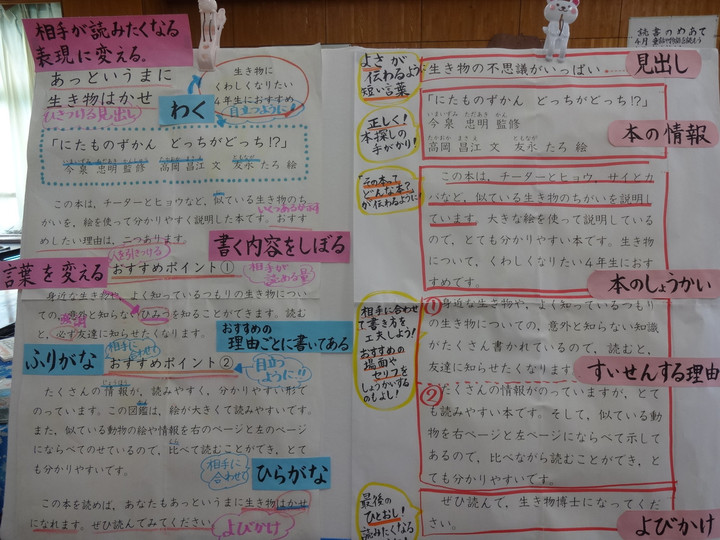 相手が読みたくなる
表現に変える。
あっというまに
生き物はかせ
ひきつける見出し
わく
生き物に
くわしくなりたい
4年生におすすめ
目立つように!
「にたものずかん どっちがどっち!?」
今泉 忠明 監修 高岡 昌江 文 友永 たろ 絵
この本は、チーターとヒョウなど、似ている生き物のち
がいを、絵を使って分かりやすく説明した本です。おすす
めしたい理由は、二つあります。
書く内容をしぼる
言葉を変える
おすすめポイント①
相手が
読める量
身近な生き物や、よく知っているつもりの生き物につい
ての、意外と知らないひみつを知ることができます。読む
と、必ず友達に知らせたくなります。
おすすめの
理由ごとに書いてある
ふりがな
相手に
合わせて
おすすめポイント②
目立つ
ように!!
たくさんの情報が、読みやすく、分かりやすい形で
のっています。この図鑑は、絵が大きくて読みやすいです。
また、似ている動物の絵や情報を右のページと左のページ
にならべてのせているので、比べて読むことができ、とて
も分かりやすいです。
相手に
合わせて
ひらがな
この本を読めば、あなたもあっというまに生き物はかせ
になれます。ぜひ読んでみてください。
よびかけ
読書のめあて
4月
よさが
伝わるよう
短い言葉
生き物の不思議がいっぱい
見出し
正しく!
本探しの
手がかり!
「にたものずかん どっちがどっち!?」
いまいずみ ただあき かん
今泉 忠明 監修
たかおか まさえ ともなが
高岡 昌江 文 友永 たろ 絵
本の情報
"その本って
どんな本?"
が伝わるように
この本は、チーターとヒョウ、サイとカ
バなど、似ている生き物のちがいを説明し
ています。大きな絵を使って説明している
ので、とても分かりやすい本です。生き物
について、くわしくなりたい4年生におす
すめです。
本のしょうかい
相手に合わせ
て書き方を
工夫しよう!
おすすめの
場面や
セリフを
しょうかいする
のもよし!
①身近な生き物や、よく知っているつもり
の生き物についての、意外と知らない知識
がたくさん書かれているので、読むと、
友達に知らせたくなります
すいせんする理由
②たくさんの情報がのっていますが、とて
も読みやすい本です。そして、似ている動
物を右ページと左ページにならべて示して
あるので、比べながら読むことができ、と
ても分かりやすいです。
最後の
ひとおし!
読みたくなる
ぜひ読んで、生き物博士になってくだ
さい。
よびかけ